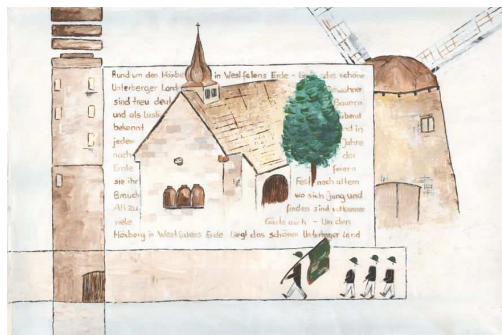 Rund um den Höxberg in Westfalens Erde - liegt das schöne
Unterberger Land Bewohner
sind treu deut Bauern
und als lustig überall
bekannt und in
jedem Jahre
nach das
Ernte feiern
sie ihr Fest nach altem
Brauch wo sich jung und
Alt zu finden sind
viele Gäste auch - Um den
Höxberg in Westfalens Erde liegt das schöne Unterberger Land